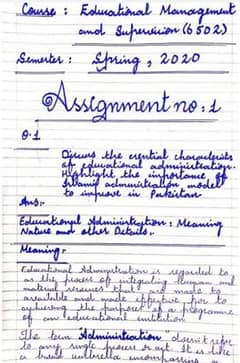 Course : Educational Management
and Supervision (6502)
Semester : Spring, 2020
Assignment no : 1
Q:1
Discuss the essential characteristics
of educational administration.
Highlight the importance of
Islamic administration model
to improve in Pakistan
Ans:-
Educational Administration : Meaning
Nature and other Details:-
Meaning:-
Educational Administration is regarded to
as the process of integrating Human and
material resources that are made to
available and made effective for to
achieving the purposes of a programme
of an educational institution
The term Administration doesn't refer
to any single process or act. It is like
a broad umbrella encompassing a